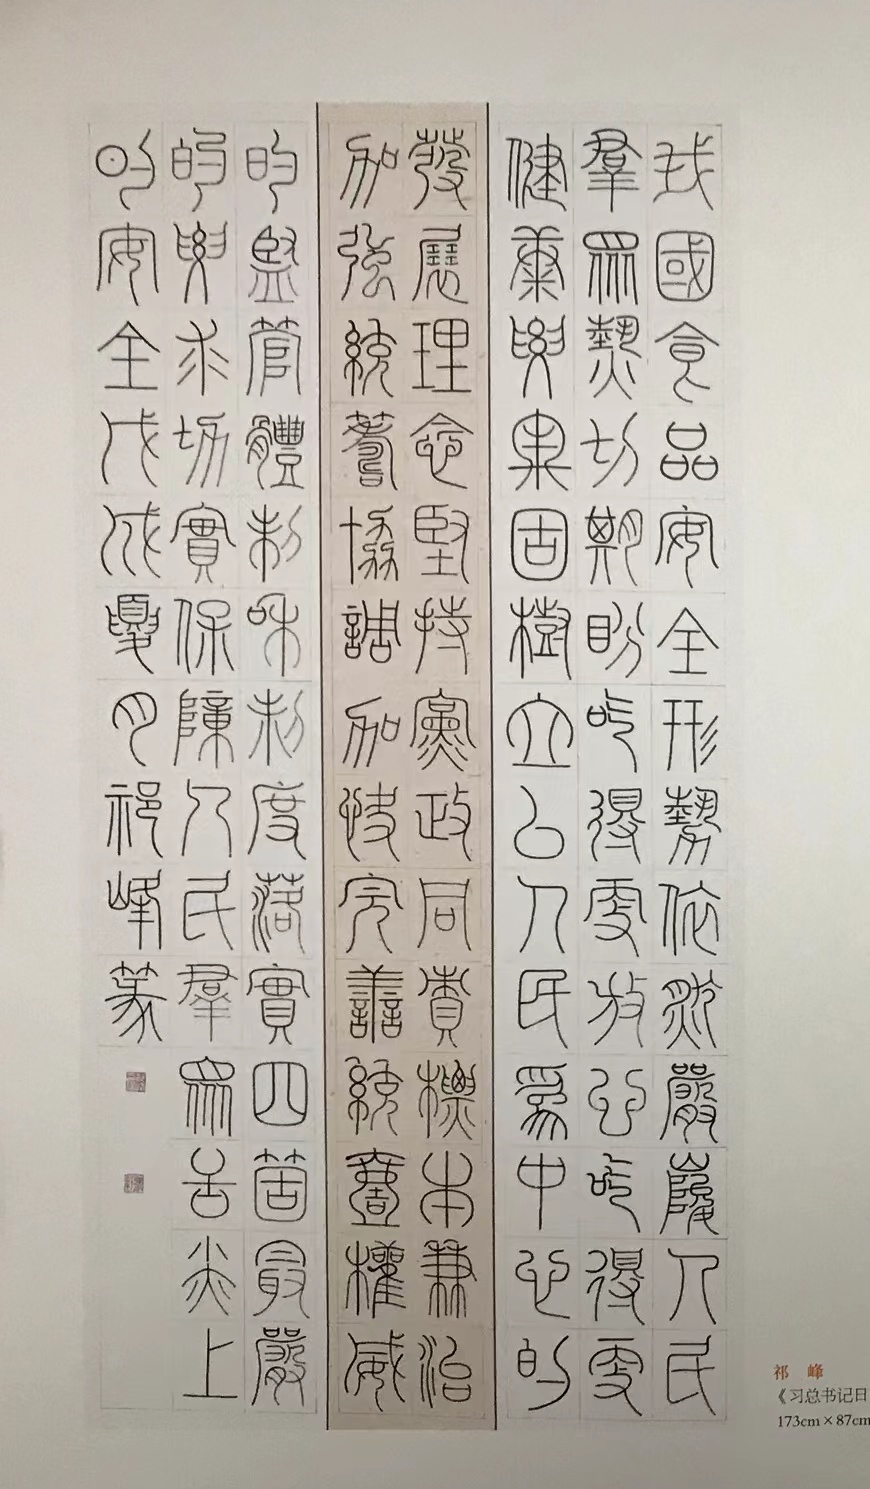 我國食品安全形勢依然嚴峻人民
羣眾熱切期盼吃得更放心吃得更
健康要牢固樹立以人民為中心的
發展理念堅持黨政同責標本兼治
加強統籌協調加快完善統壹權威
的監管體制和制度落實四箇最嚴
的要求切實保障人民羣眾舌尖上
的安全戊戌夏月祁峰篆
祁 峰
《习总书记日
173cm×87cm